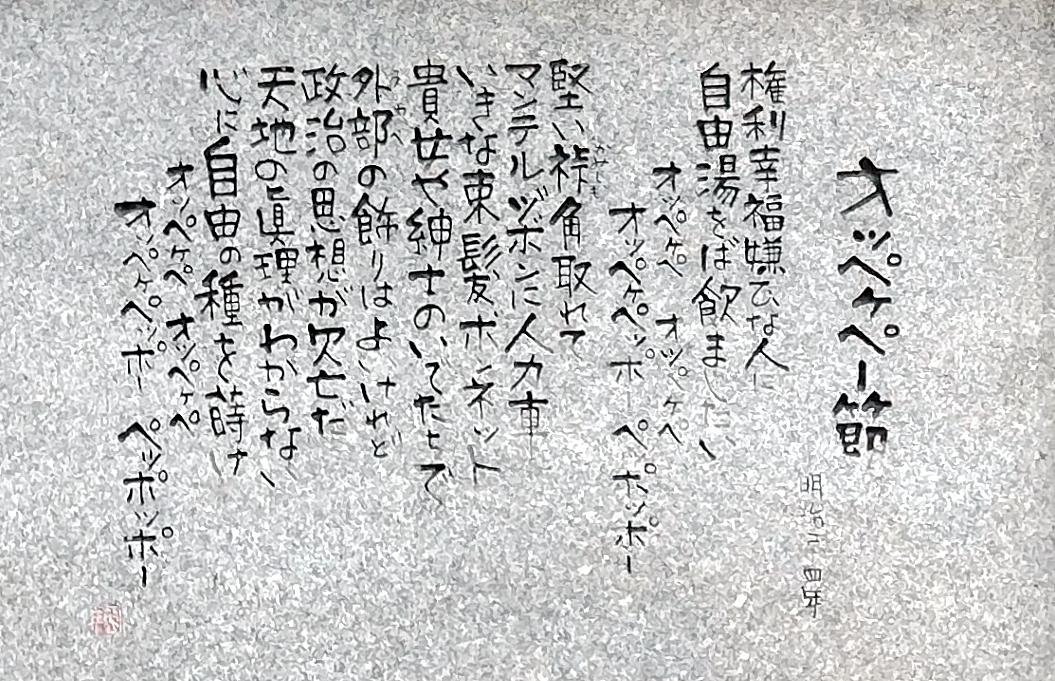 オッペケペー節
明治二四年
権利幸福嫌ひな人に
自由湯をば飲ましたい
オッペケペ オッペケペ
オッペケペッポー ペッポッポー
堅い裃角取れて
マンテルヅボンに人力車
いきな束髪ボンネット
貴女や紳士のいでたちで
外部の飾りはよいけれど
政治の思想が欠亡だ
天地の眞理がわからない
心に自由の種を蒔け
オッペケペ オッペケペ
オッペケペッポー ペッポッポー